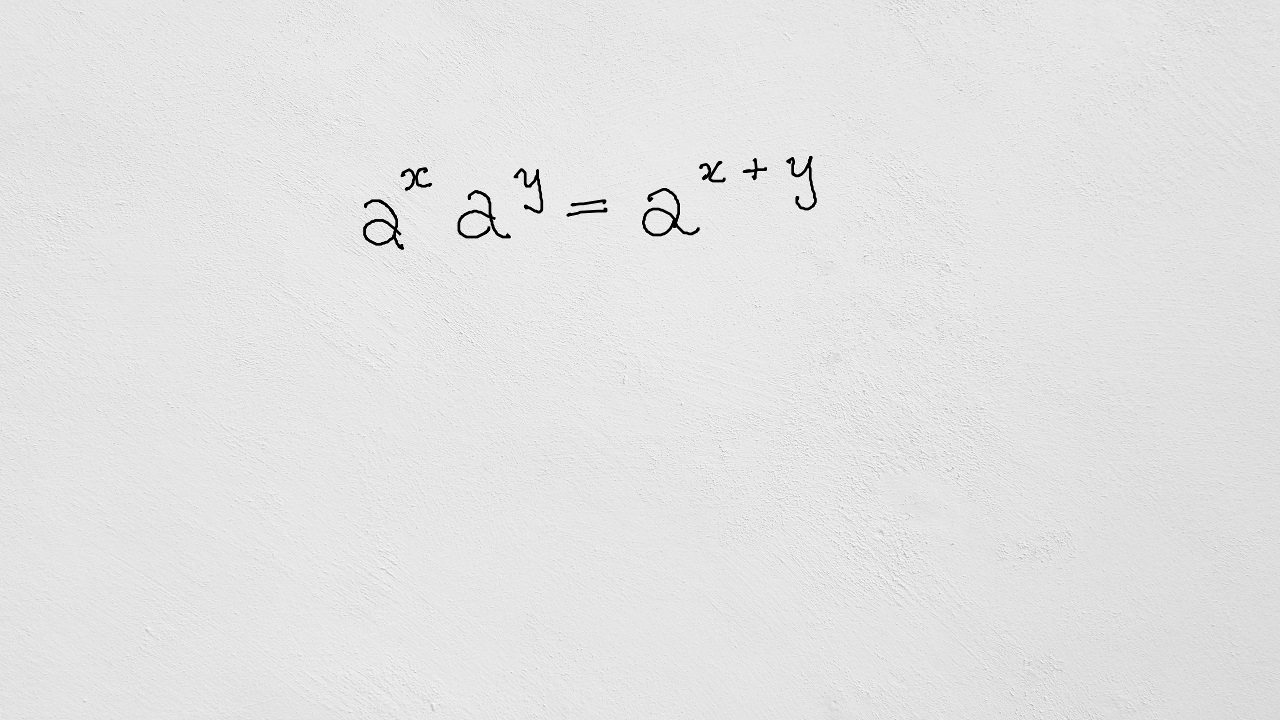 a^x a^y = a^{x + y}